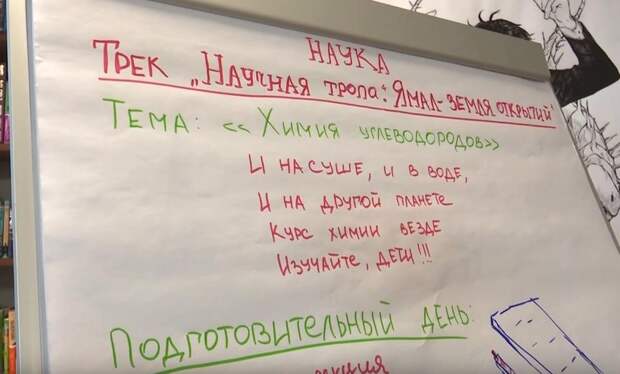 НАУКА
ТРЕК „НАУЧНАЯ ТРОПА: ЯМАЛ-ЗЕМЛЯ ОТКРЫТИЙ"
ТЕМА: «ХИМИЯ УГЛЕВОДОРОДОВ»
И НА СУШЕ, И В ВОДЕ,
И НА ДРУГОЙ ПЛАНЕТЕ
КУРС ХИМИИ ВЕЗДЕ
ИЗУЧАЙТЕ, ДЕТИ!!!
ПОДГОТОВИТЕЛЬНЫЙ ДЕНЬ: